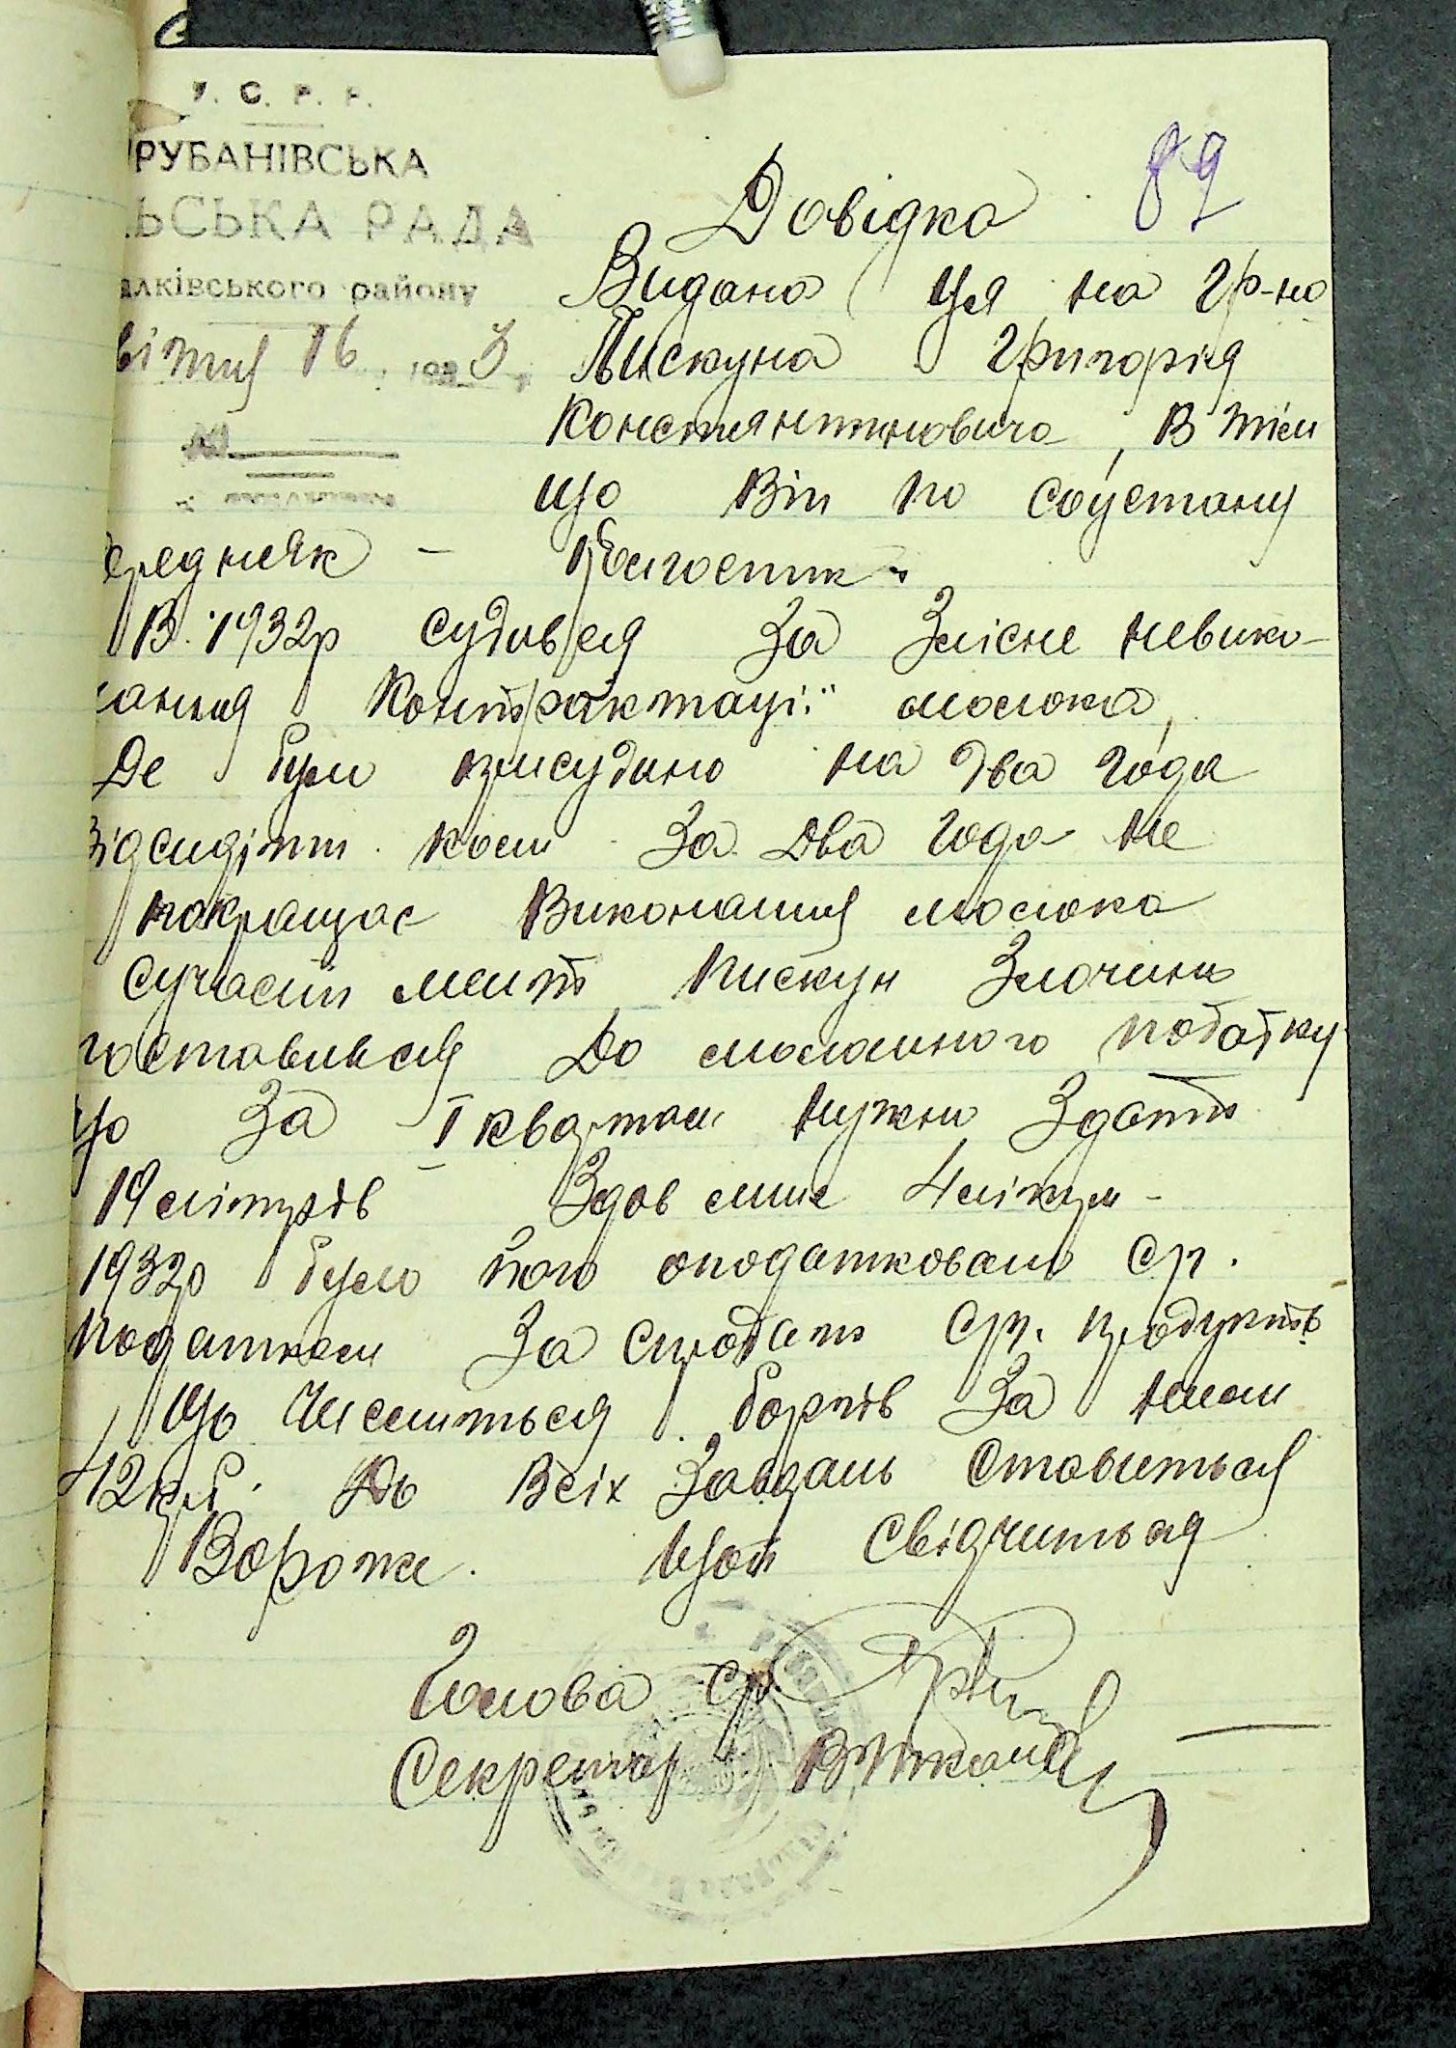 У. С. Р. Р.
РУБАНІВСЬКА
ЛЬСЬКА РАДА
алківського району
вітня 16 193 3
№
89
Довідка
Видана ця на гр-на
Пискуна Григорія
Константиновича, в тім
що він по соцстану
середняк –
В 1932р судився за злісне невико-
нання контрактації молока,
Де було присудино на два года
відсидіти коли за два года не
покращає виконання молока
сучасний мент Пискун злочинно
поставився до молочного податку
що за І квартал нужно здать
19 літрів здав лише 4 літри –
1932р було його оподатковано ср.
податком за продаж ср. продуктів
що числиться боргів за ним
42 крб. до всіх завдань ставиться
Вороже. Що й свідчиться
Голова ср
Секретар